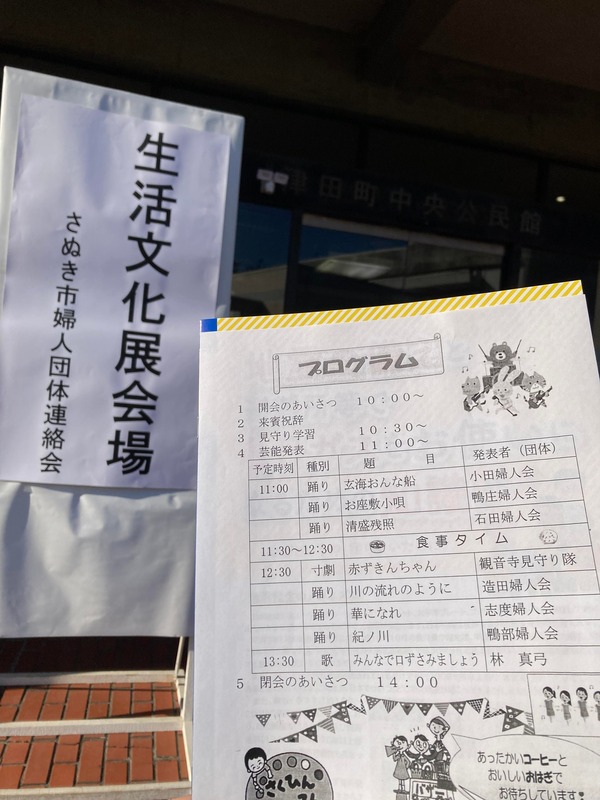 生活文化展会場
さぬき市婦人団体連絡会
津田町中央公民館
プログラム
1 開会のあいさつ 10:00~
2 来賓祝辞
3 見守り学習 10:30~
4 芸能発表 11:00~
予定時刻 種別 題 目 発表者(団体)
11:00 踊り 玄海おんな船 小田婦人会
踊り お座敷小唄 鴨庄婦人会
踊り 清盛残照 石田婦人会
11:30~12:30 食事タイム
12:30 寸劇 赤ずきんちゃん 観音寺見守り隊
踊り 川の流れのように 造田婦人会
踊り 華になれ 志度婦人会
踊り 紀ノ川 鴨部婦人会
13:30 歌 みんなで口ずさみましょう 林 真弓
5 閉会のあいさつ 14:00
あったかいコーヒーと
おいしいおはぎで
お待ちしています
さくひん